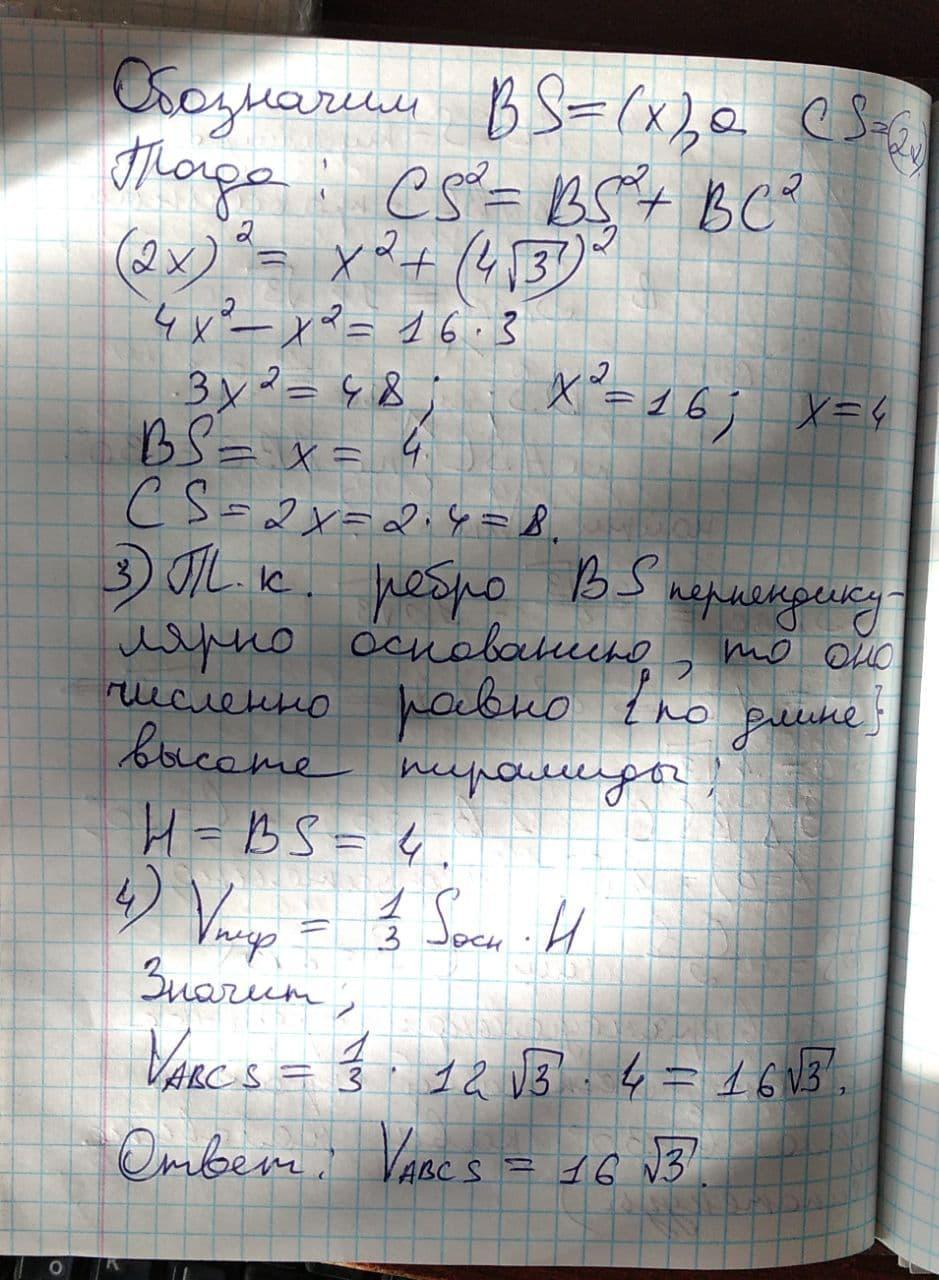 Обозначим BS=(x), а CS=(2x)
Тогда: CS²= BS²+ BC²
(2x)²= x²+(4√3)²
4x²-x²=16·3
3x²=48; x²=16; x=4
BS= x= 4
CS=2x=2·4=8.
3) Т.к. ребро BS перпендику-
лярно основанию, то оно
численно равно {по длине}
высоте пирамиды;
H=BS=4.
4) Vпир = 1/3 Sосн·H
Значит;
VABCS = 1/3 · 12√3 · 4 = 16√3.
Ответ: VABCS = 16√3.